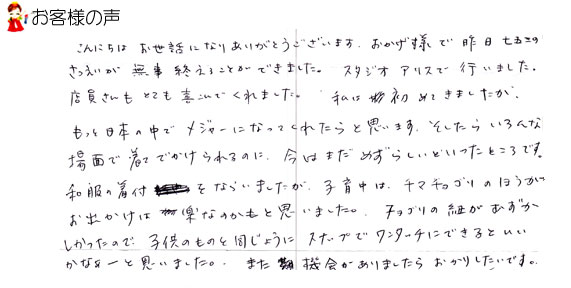 お客様の声
こんにちは お世話になりありがとうございます。おかげ様で 昨日 七五三の
さつえいが 無事 終えることができました。 スタジオアリスで 行いました。
店員さんも とても 喜んでくれました。 私は 初めてきましたが、
もっと日本の中で メジャーになってくれたらと思います。そしたら いろんな
場面で 着て でかけられるのに、今はまだ めずらしいといったところです。
和服の着付 をならいましたが、子育中は、チマチョゴリのほうが
お出かけは 楽なのかもと思いました。 チョゴリの紐が むずか
しかったので、子供のものと同じように スナップで ワンタッチにできるといい
かなぁーと思いました。 また 機会がありましたら おかりしたいです。